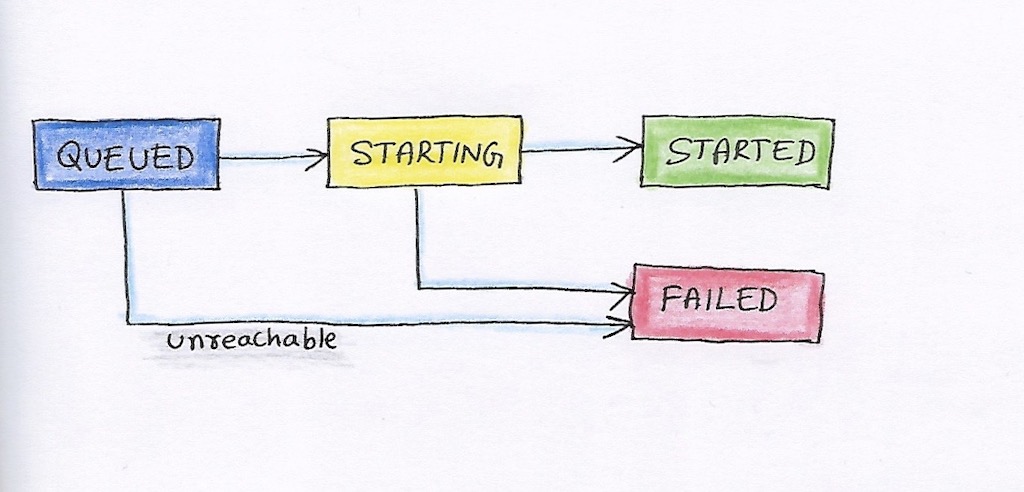 QUEUED
STARTING
STARTED
FAILED
unreachable